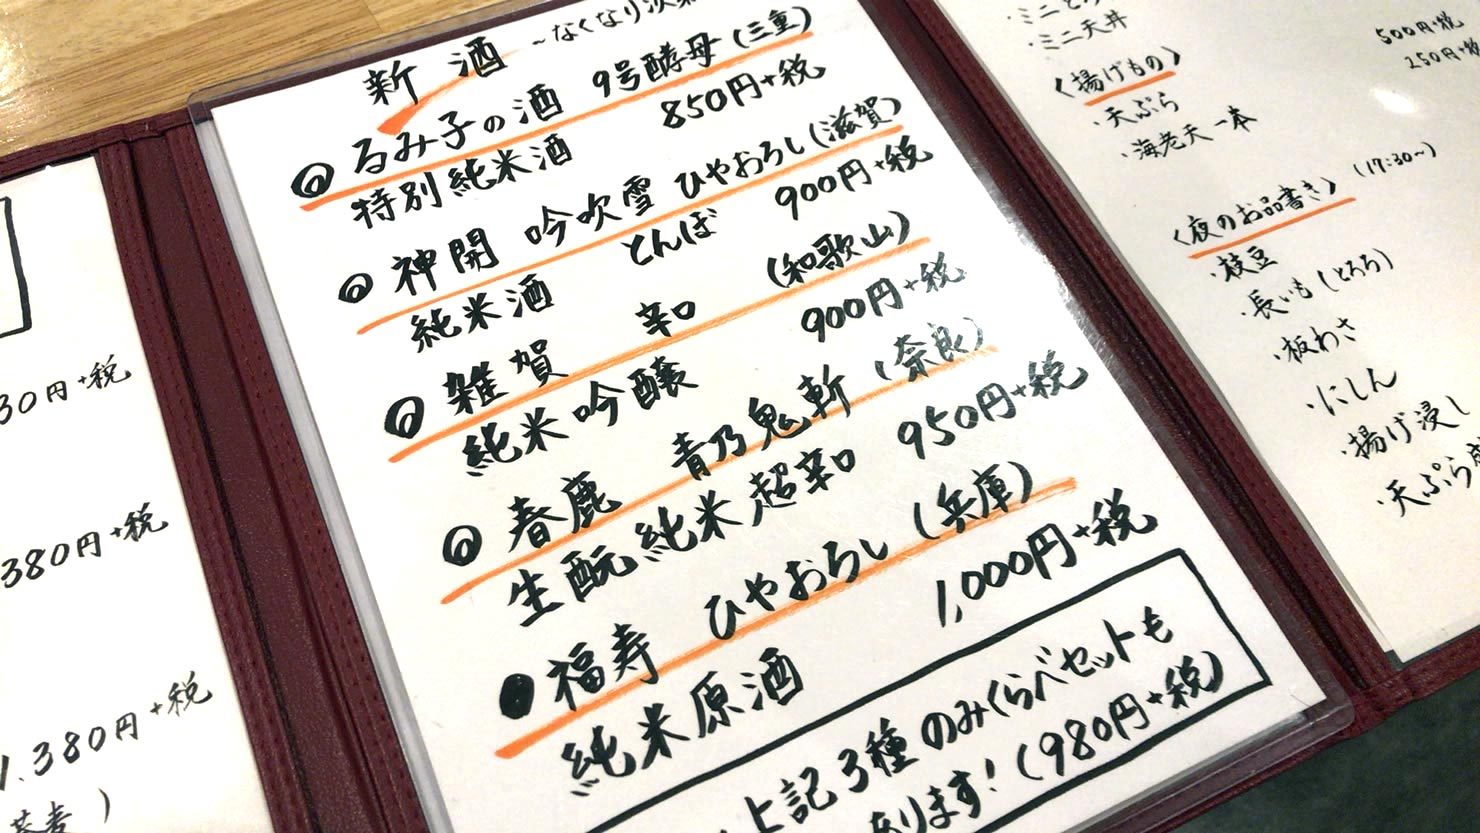 新酒 ~なくなり次第
◎ るみ子の酒 9号酵母(三重)
特別純米酒 850円+税
◎ 神開 吟吹雪 ひやおろし(滋賀)
純米酒 とんぼ 900円+税
◎ 雑賀 辛口 (和歌山)
純米吟醸 900円+税
◎ 春鹿 青乃鬼斬 (奈良)
生酛純米超辛口 950円+税
● 福寿 ひやおろし (兵庫)
純米原酒 1,000円+税
上記3種 のみくらべセットも
あります! (980円+税)
30円+税
380円+税
1.380円+税
)
・ミニ
・ミニ天丼
500円+税
250円+税
〈揚げもの〉
・天ぷら
・海老天一本
〈夜のお品書き〉 (17:30~)
・枝豆
・長いも(とろろ)
・板わさ
・にしん
・揚げ浸し
・天ぷら